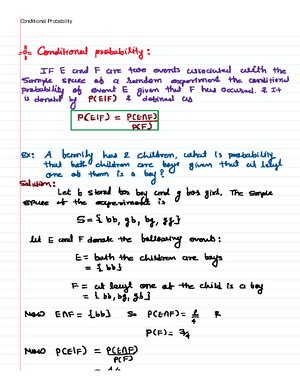 Conditional Probability
Conditional probability:
IF E and F are two events associated with the
Sample space of a random experiment the conditional
probability of event E given that F has occured. & It
is denoted by P(E|F) & defined as
P(E|F) = P(E∩F)
P(F)
Ex: A family has 2 children, what is probability
that both children are boys given that at least
one of them is a boy?
Solution:
Let b stand for boy and g for girl. The sample
space of the experiment is
S = { bb, gb, bg, gg}
let E and F denote the following events:
E = both the children are boys
= { bb}
F = at least one of the child is a boy
= { bb, gb, bg}
Now E∩F = {bb} So P(E∩F) = 1/4 &
P(F) = 3/4
Now P(E|F) = P(E∩F)
P(F)
= 1/4